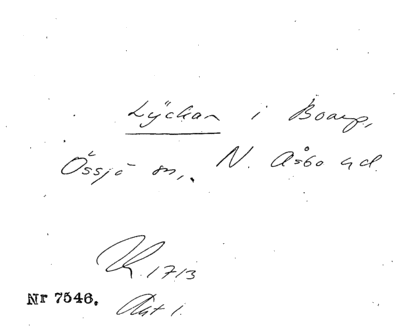 Lyckan i Boarp,
Össjö sn., N. Åsbo hd.
K. 1713
Akt 1.
Nr 7546.